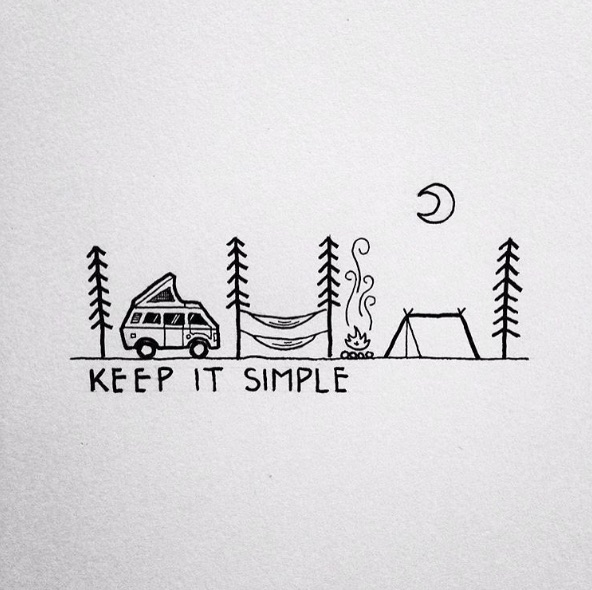 KEEP IT SIMPLE